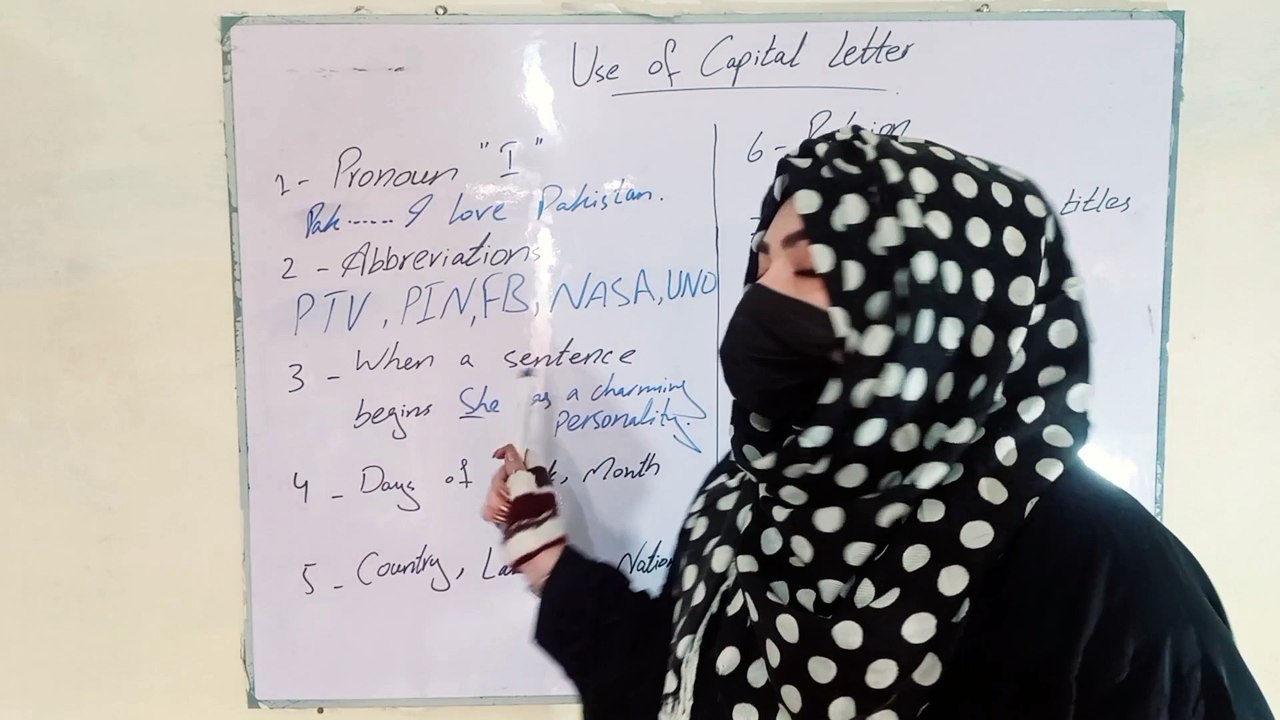 Use of Capital Letter
1- Pronoun "I"
Pak...... I love Pakistan.
2 - Abbreviations
PTV, PIN, FB, NASA, UNO
3 - When a sentence
begins She as a charming
personality.
4 - Days of , Month
5 - Country,
6 -
titles